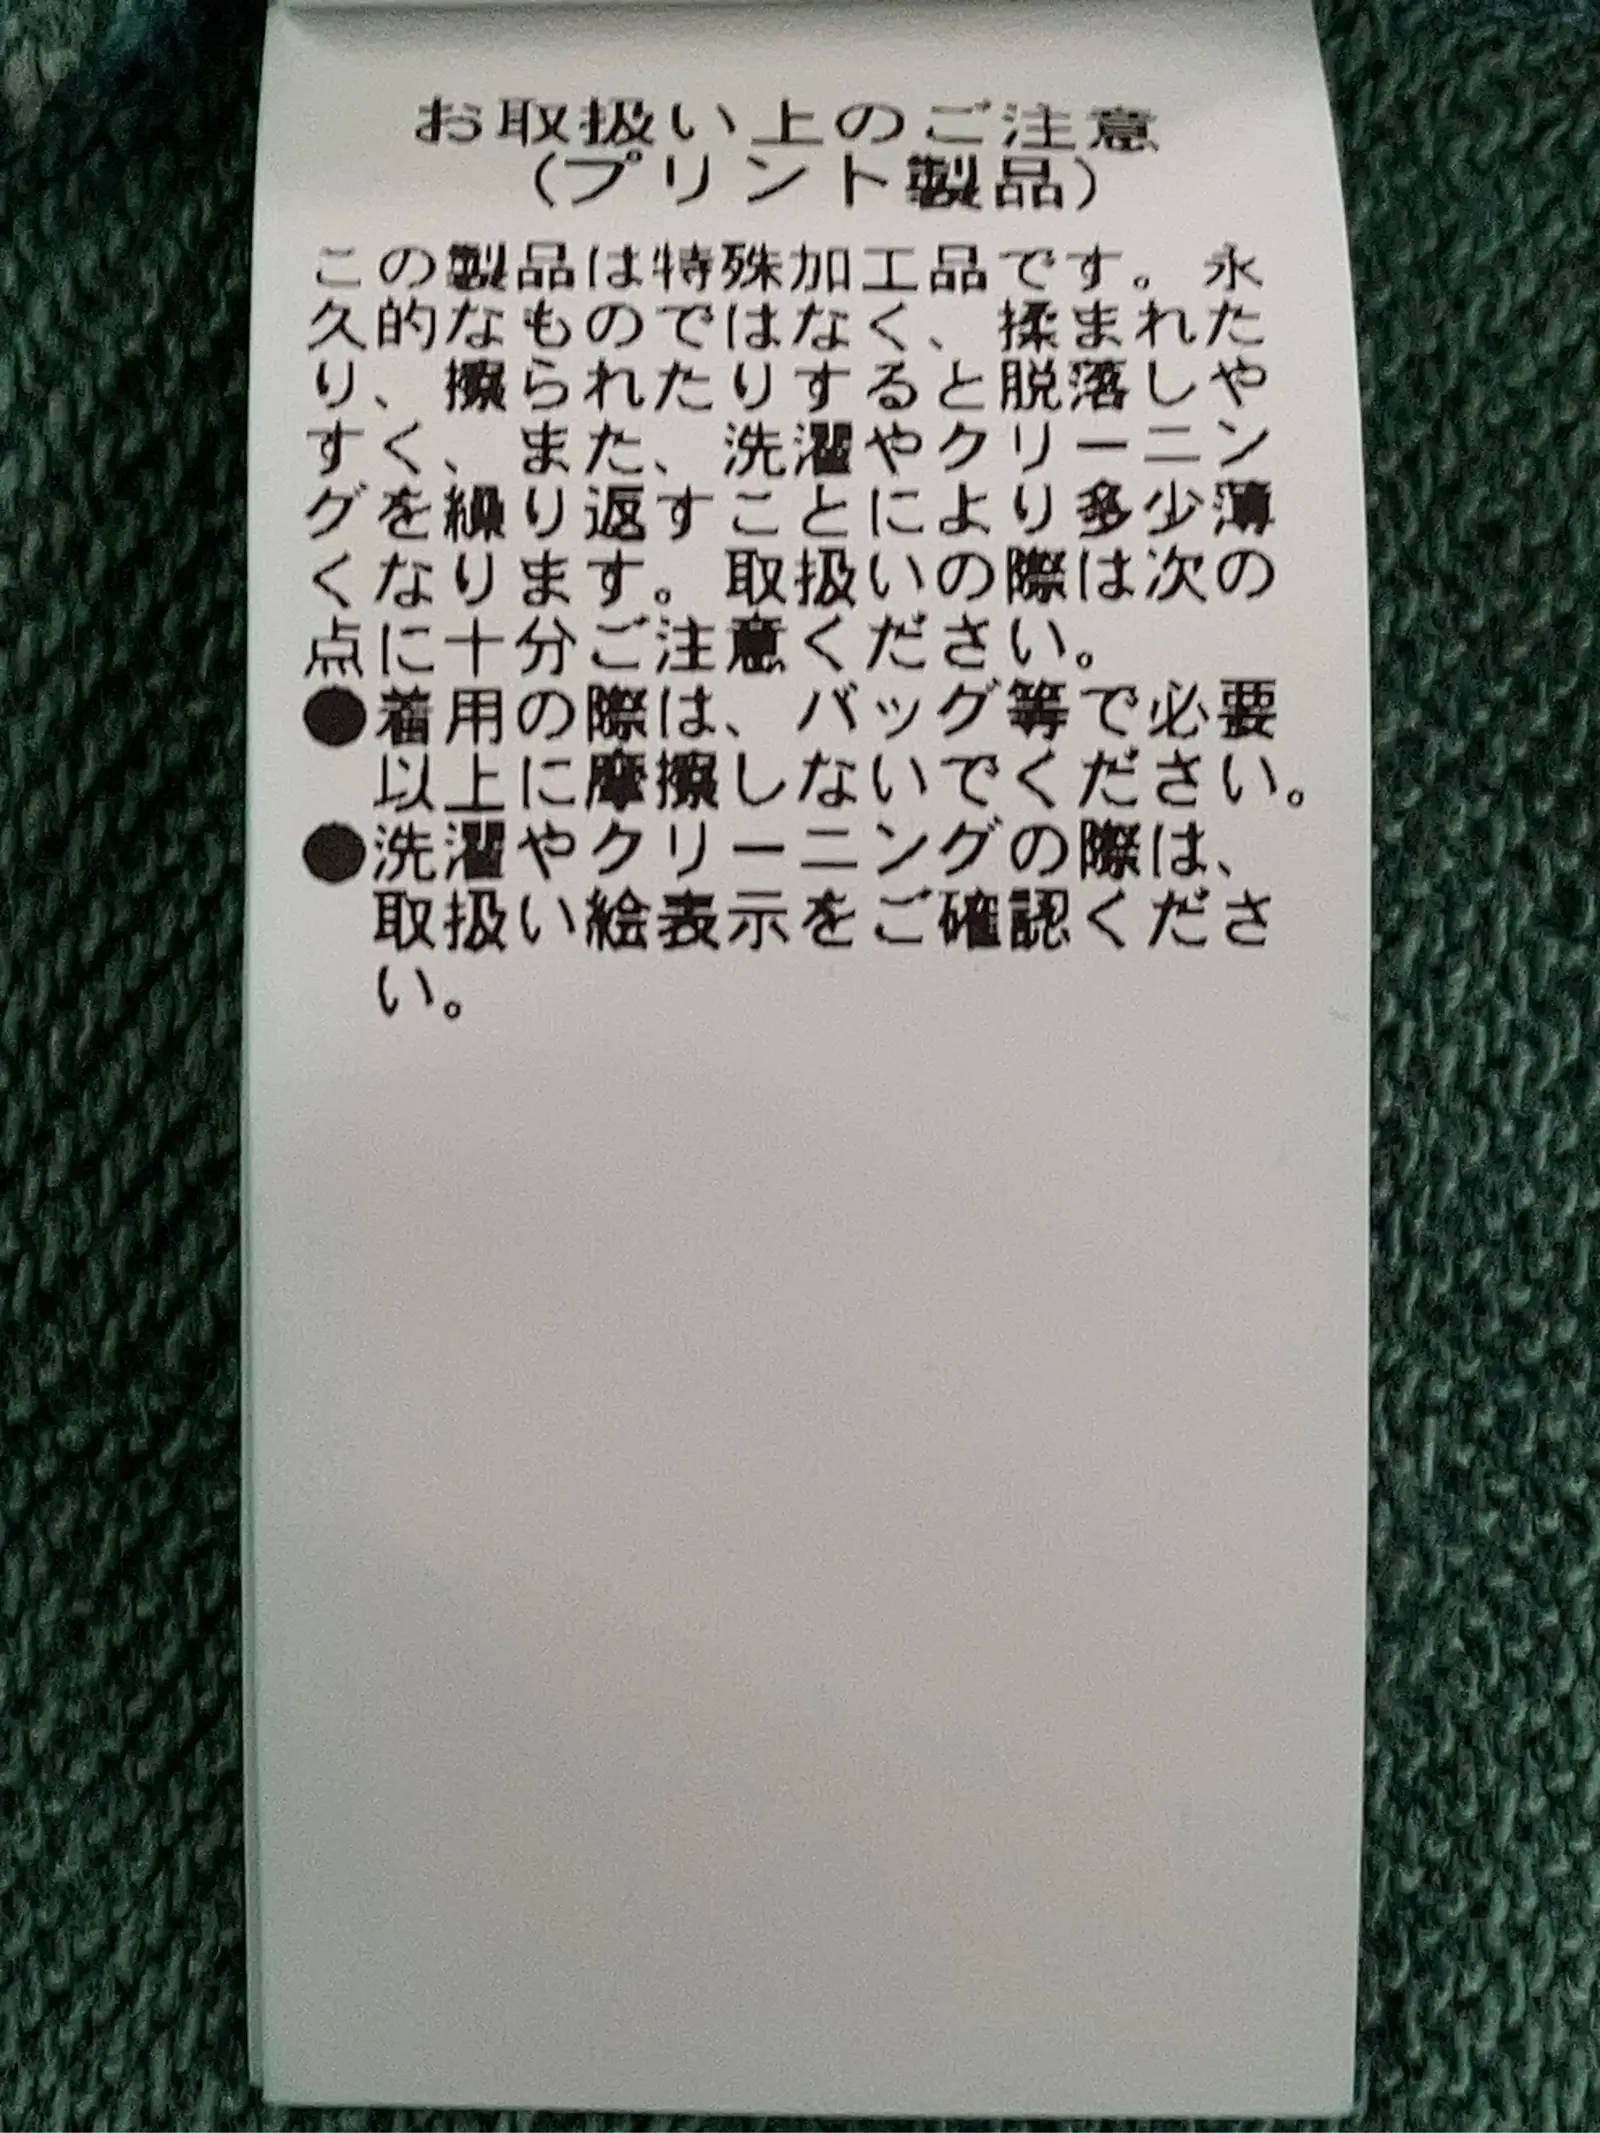 お取扱い上のご注意
(プリント製品)
この製品は特殊加工品です。永
久的なものではなく、揉まれた
り、擦られたりすると脱落しや
すく、また、洗濯やクリーニン
グを繰り返すことにより多少薄
くなります。取扱いの際は次の
点に十分ご注意ください。
●着用の際は、バッグ等で必要
以上に摩擦しないでください。
●洗濯やクリーニングの際は、
取扱い絵表示をご確認くださ
い。